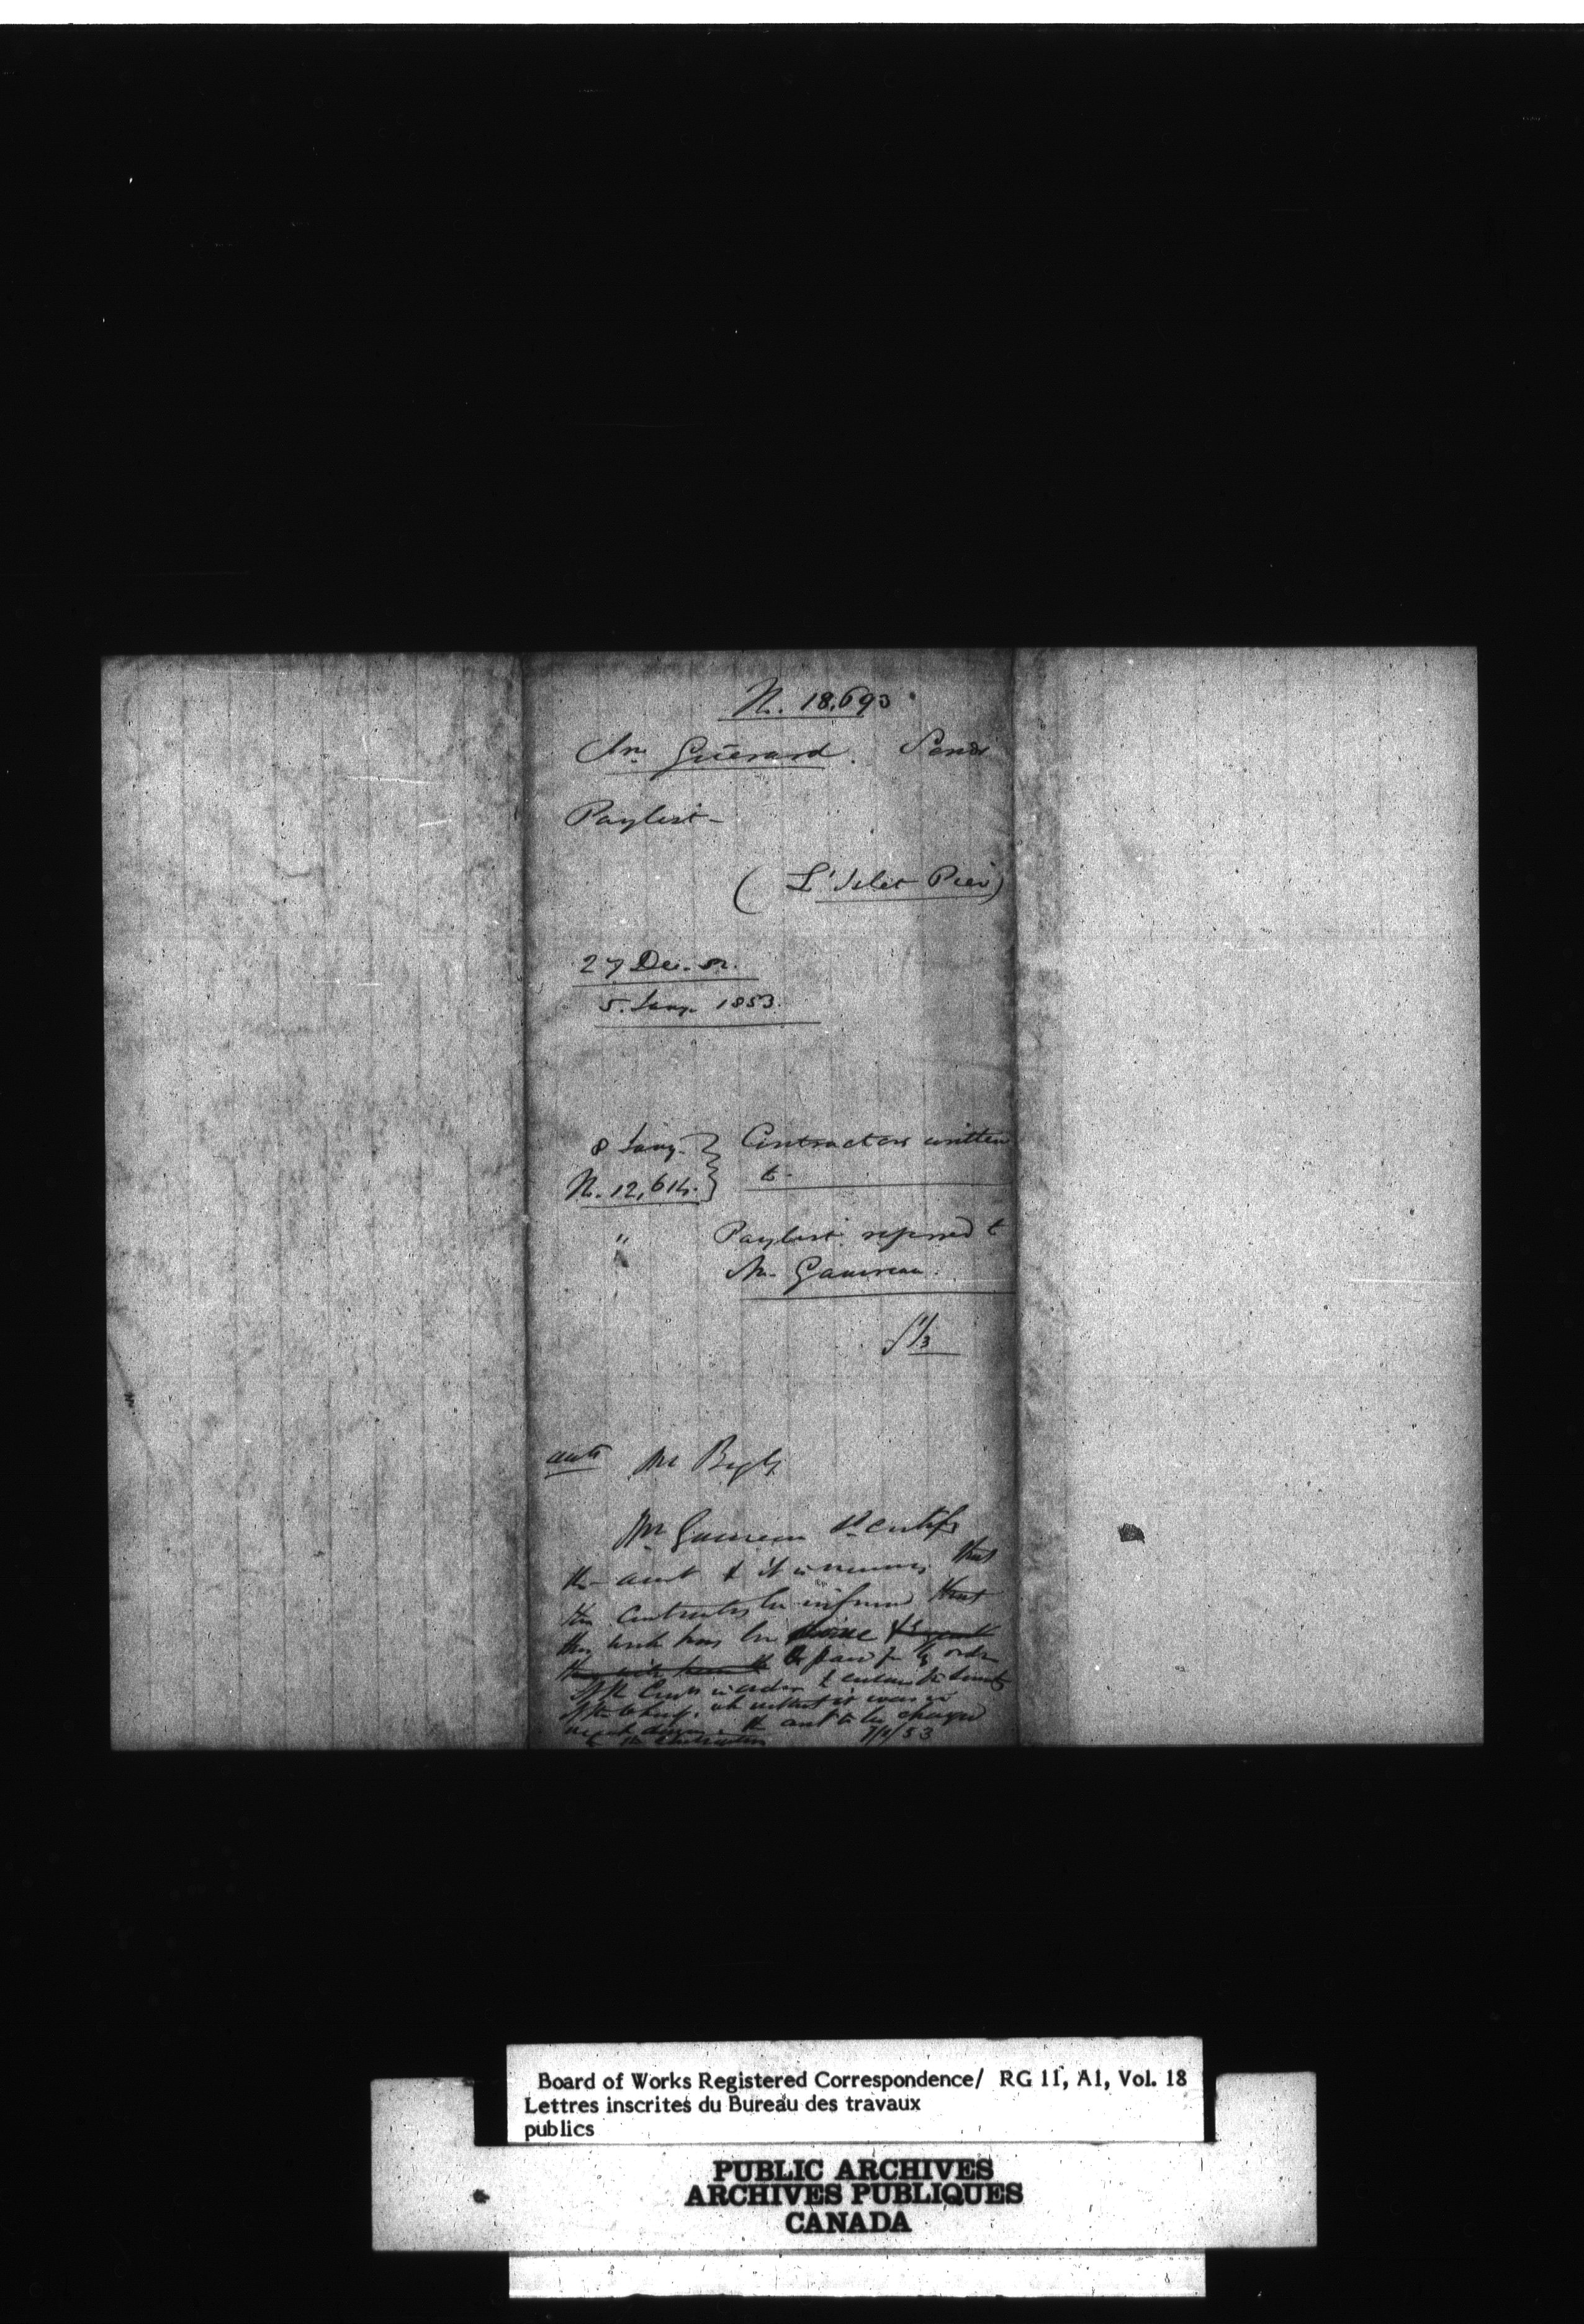 N. 18,693
Mr. Guerard. Sends
Paylist -
( L'Islet Pier )
27 Dec. 52.
5. Jany. 1853.
8 Jany. } Contractors written
N. 12,614. } to -
" Paylist referred to
Mr. Gauvreau.
Mr Begly
Mr Gauvreau
the amt & it is necessary that
the Contractors be informed that
this work has be
paid for by order
of the
of the Wharf, without it was in
the amt to be charged
to the Contractors 7/1/53
Board of Works Registered Correspondence/ RG 11, A1, Vol. 18
Lettres inscrites du Bureau des travaux
publics
PUBLIC ARCHIVES
ARCHIVES PUBLIQUES
CANADA